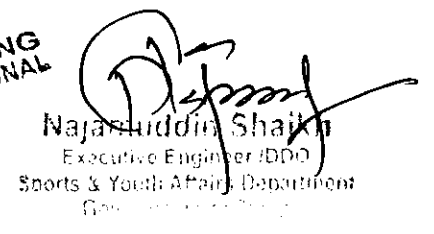 NG
NAL
Najamuddin Shaikh
Executive Engineer /DDO
Sports & Youth Affairs Department